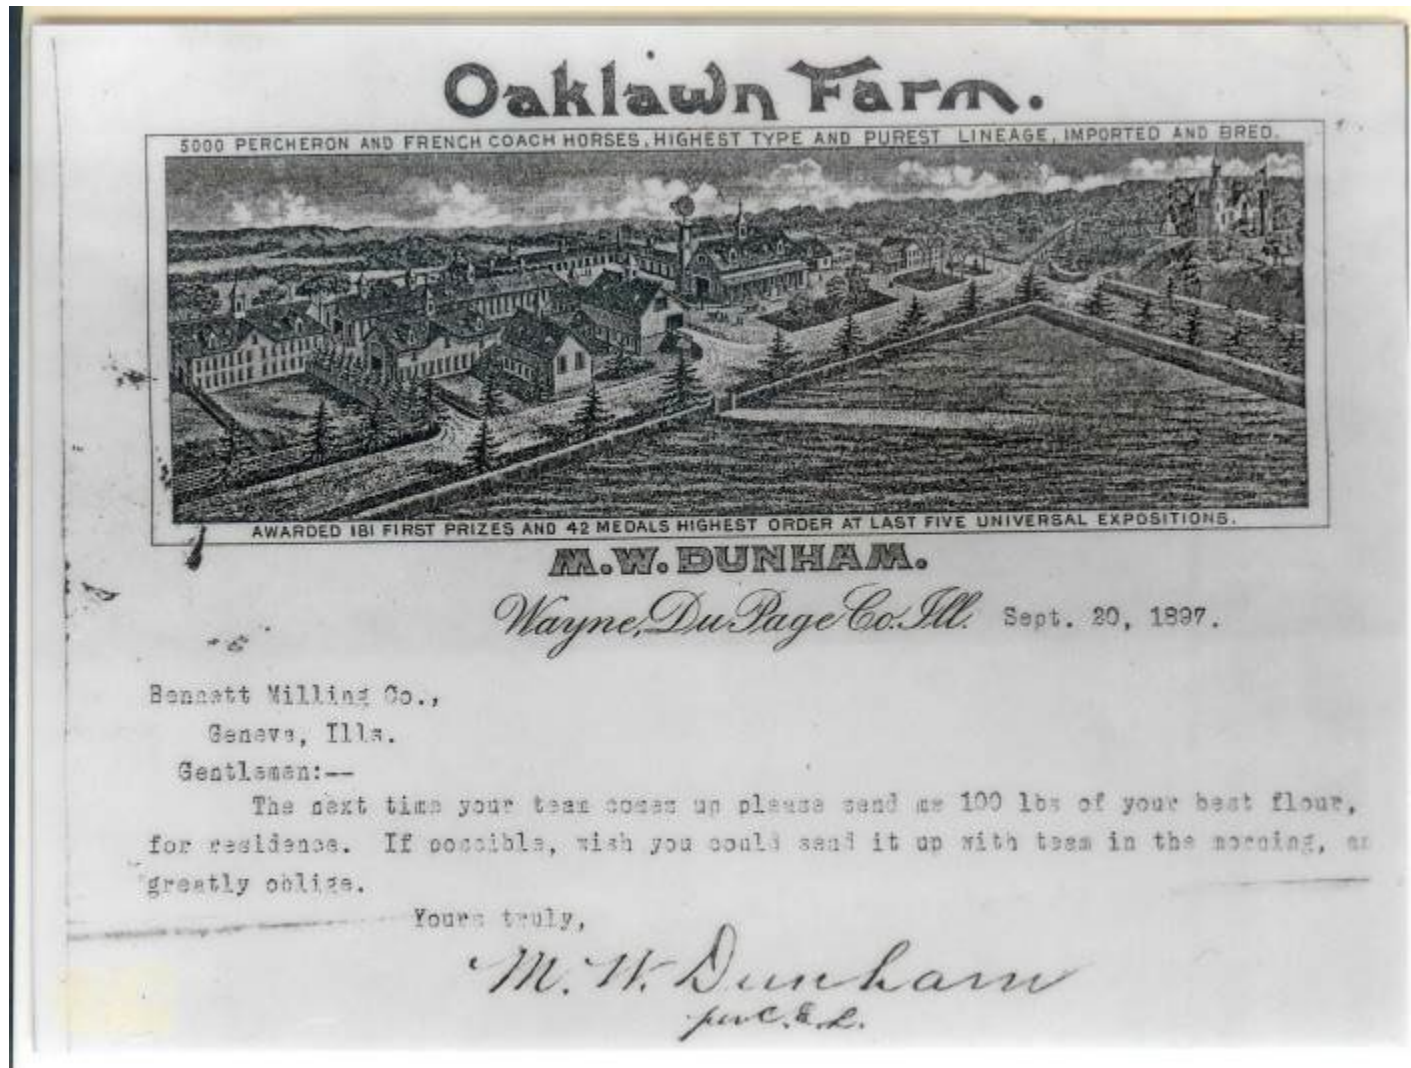 Oaklawn Farm.
5000 PERCHERON AND FRENCH COACH HORSES, HIGHEST TYPE AND PUREST LINEAGE, IMPORTED AND BRED.
AWARDED 181 FIRST PRIZES AND 42 MEDALS HIGHEST ORDER AT LAST FIVE UNIVERSAL EXPOSITIONS.
M.W. DUNHAM.
Wayne, Du Page Co. Ill. Sept. 20, 1897.
Bennett Milling Co.,
Geneva, Ills.
Gentlemen:--
The next time your team comes up please send me 100 lbs of your best flour,
for residence. If possible, wish you could send it up with team in the morning,
greatly oblige.
Yours truly,
M. W. Dunham
per C. E. L.